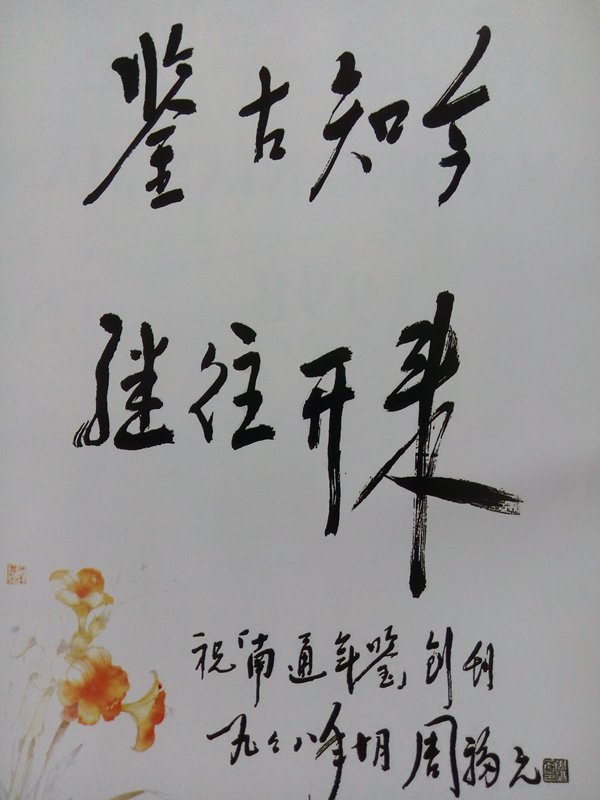 鉴古知今
继往开来
祝「南通年鉴」创刊
一九九八年十月 周福元